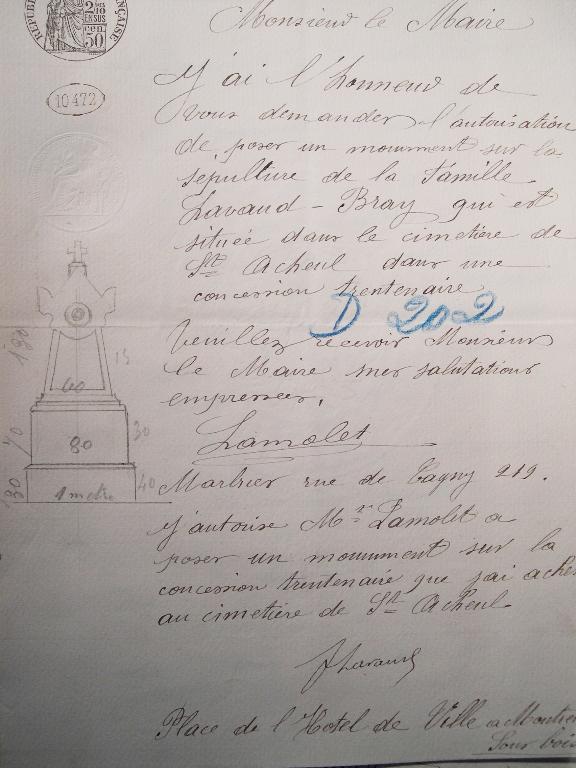 RÉPUBLIQUE FRANÇAISE
2/10
EN SUS
cen.
50
10472
Monsieur le Maire
J'ai l'honneur de
vous demander l'autorisation
de poser un monument sur la
sépulture de la famille
Lavaud - Bray qui est
située dans le cimetière de
St Acheul dans une
concession trentenaire
D 202
Veuillez recevoir Monsieur
le Maire mes salutations
empressées,
Lamolet
Marbrier rue de Cagny 219.
J'autorise Mr Lamolet a
poser un monument sur la
concession trentenaire que j'ai ache
au cimetière de St Acheul
Place de l'Hotel de Ville a Montreu
Sous bois
180
15
60
70
80
30
130
1 metre
40